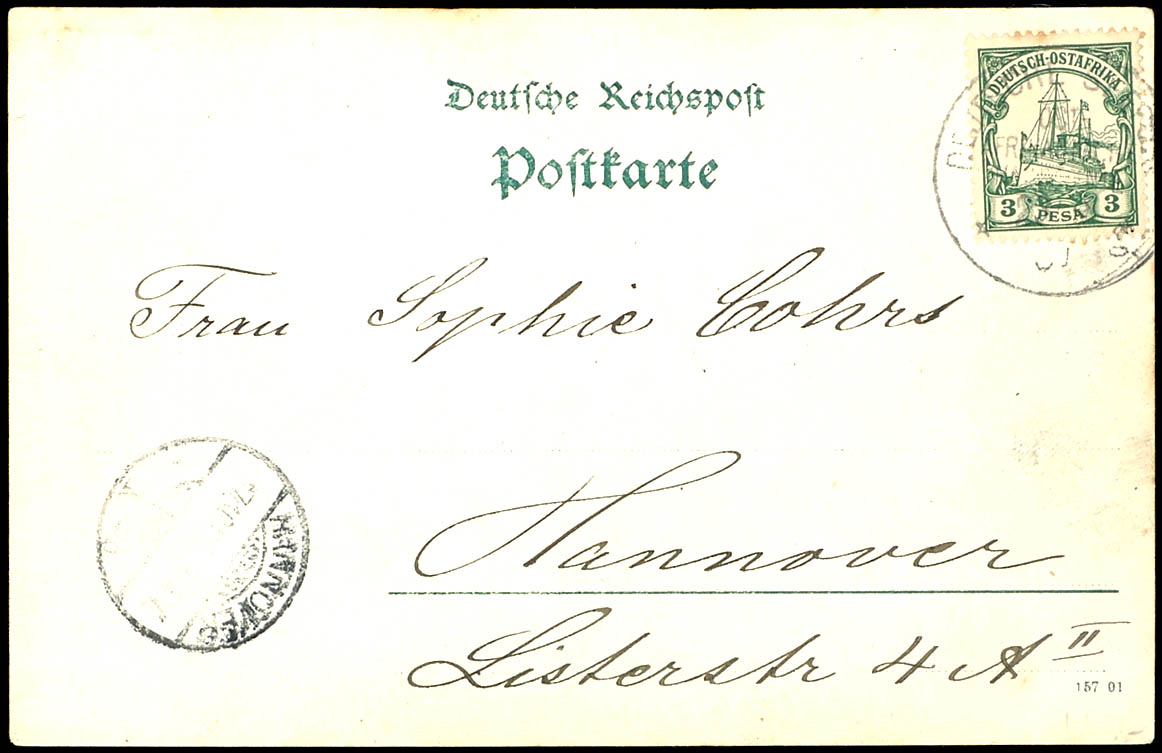 Deutsche Reichspost
Postkarte
DEUTSCH-OSTAFRIKA
3 PESA 3
Frau Sophie Cohrs
Hannover
Listerstr 4 A II
HANNOVER
157 01